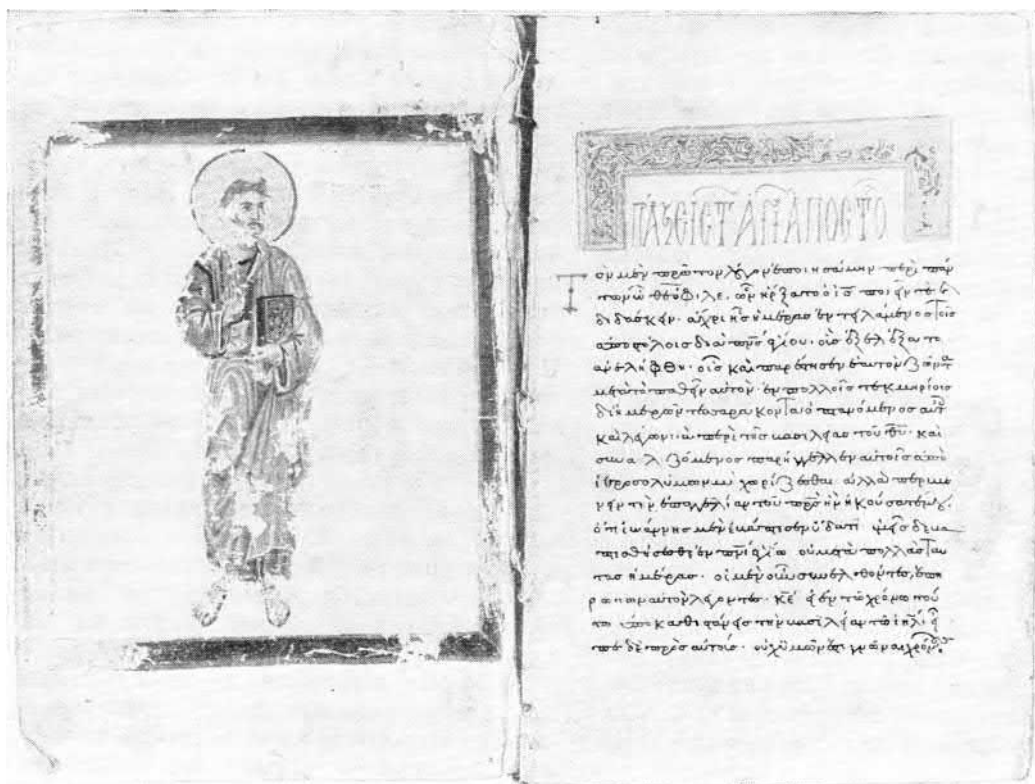 ΠΡΑΞΕΙΣ ΤΩΝ ΑΓΙΩΝ ΑΠΟΣΤΟ
Τὸν μὲν πρῶτον λόγον ἐποιησάμην περὶ πάν
των ὦ θεόφιλε, ὧν ἤρξατο ὁ ις ποιεῖν τε κ
διδάσκειν· ἄχρι ἧς ἡμέρας ἐντειλάμενος τοῖς
ἀποστόλοις διὰ πνς ἁγίου· οὓς ἐξελέξατο
ἀνελήφθη· οἷς καὶ παρέστησεν ἑαυτὸν ζῶντα
μετὰ τὸ παθεῖν αὐτὸν· ἐν πολλοῖς τεκμηρίοις
δι ἡμερῶν τεσσαράκοντα ὀπτανόμενος αὐτ
καὶ λέγων τὰ περὶ τῆς βασιλείας του θυ· καὶ
συναλιζόμενος παρήγγελλεν αὐτοῖς ἀπὸ
ἱεροσολύμων μὴ χωρίζεσθαι ἀλλὰ περιμέ
νειν τὴν ἐπαγγελίαν τοῦ πρς ἣν ἠκούσατέ μου·
ὅτι ἰωάννης μὲν ἐβάπτισεν ὕδατι ὑμεῖς δὲ βα
πτισθήσεσθε ἐν πνι ἁγίω οὐ μετὰ πολλὰς ταύ
τας ἡμέρας· οἱ μὲν οὖν συνελθόντες, ἐπη
ρώτων αὐτὸν λέγοντες· κε εἰ ἐν τῶ χρόνω τού
τω ἀποκαθιστάνεις τὴν βασιλείαν τῶ ιηλ· εἶ
πε δὲ πρὸς αὐτούς· οὐχ ὑμῶν ἐστι γνῶναι χρόνους